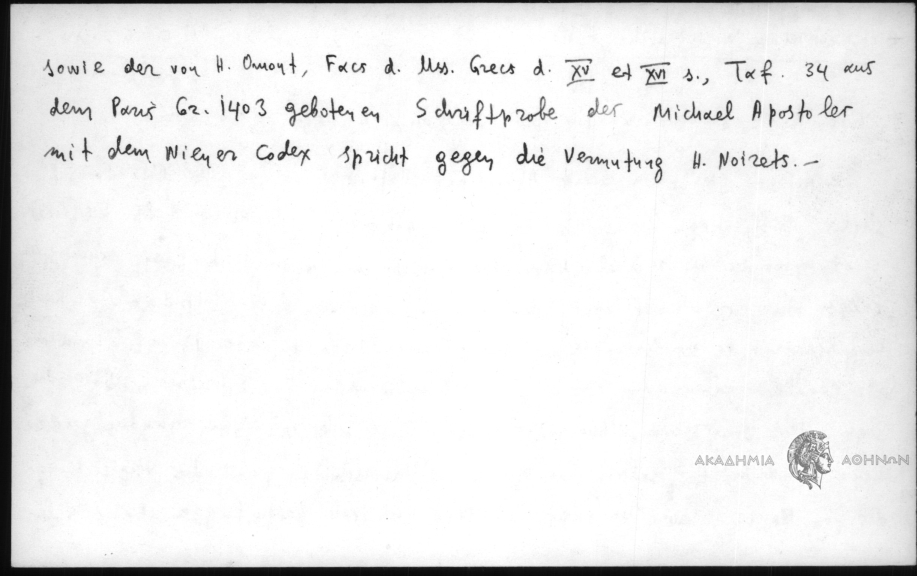 sowie der von H. Omont, Facs d. Mss. Grecs d. XV et XVI s., Taf. 34 aus
dem Paris Gr. 1403 gebotenen Schriftprobe der Michael Apostoler
mit dem Wiener Codex spricht gegen die Vermutung H. Noirets. –
ΑΚΑΔΗΜΙΑ ΑΘΗΝΩΝ